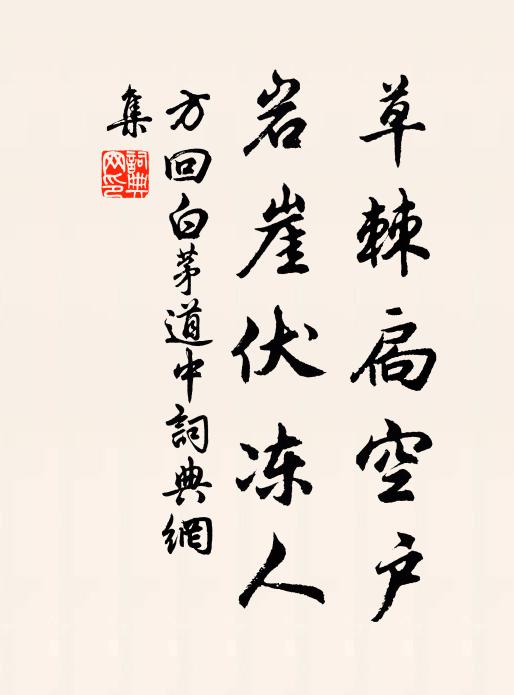 草棘扃空户
岩崖伏冻人
方回白茅道中詞典網
集
詞典
网印